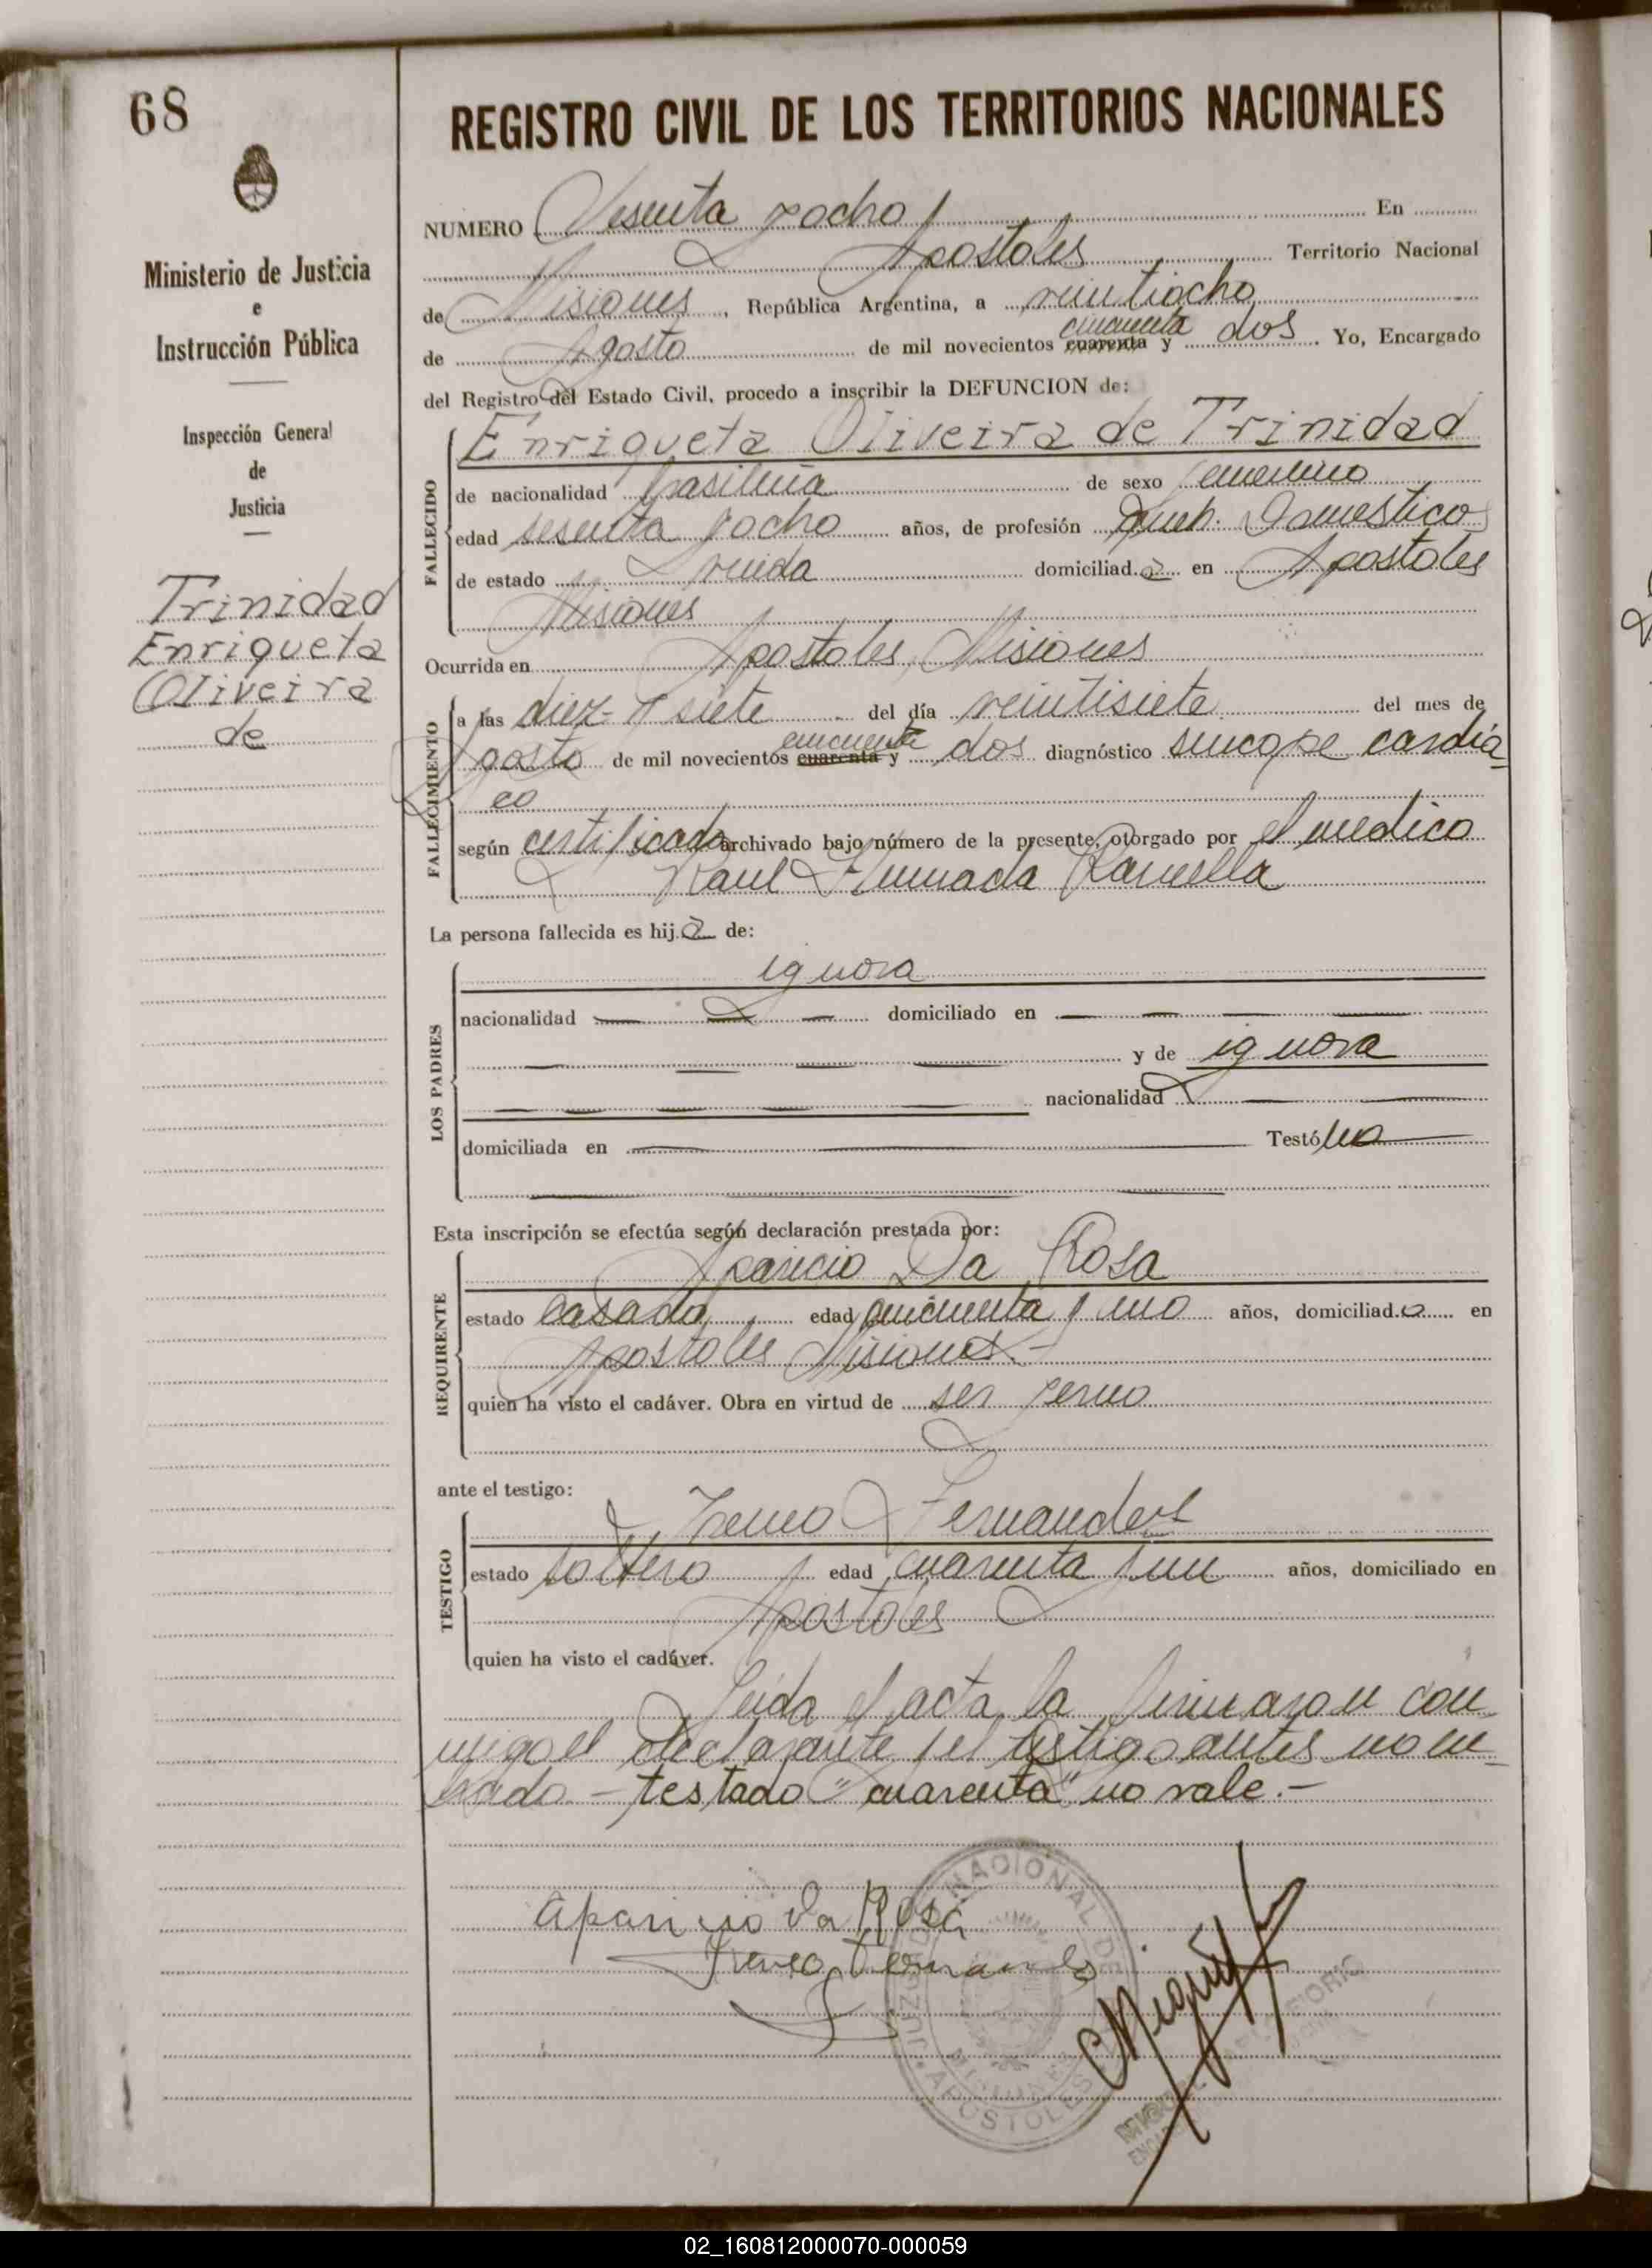 68
Ministerio de Justicia
e
Instrucción Pública
Inspección General
de
Justicia
Trinidad
Enriqueta
Oliveira
de
REGISTRO CIVIL DE LOS TERRITORIOS NACIONALES
NUMERO Sesenta y ocho En
Apostoles Territorio Nacional
de Misiones, República Argentina, a veintiocho
cincuenta
de Agosto de mil novecientos cuarenta y dos. Yo, Encargado
del Registro del Estado Civil, procedo a inscribir la DEFUNCION de:
FALLECIDO
Enriqueta Oliveira de Trinidad
de nacionalidad brasileña de sexo femenino
edad sesenta y ocho años, de profesión Queh. Domestico
de estado viuda domiciliada en Apostoles
Misiones
Ocurrida en Apostoles, Misiones
FALLECIMIENTO
a las diez y siete del día veintisiete del mes de
cincuenta
Agosto de mil novecientos cuarenta y dos diagnóstico sincope cardia-
co
según certificado archivado bajo número de la presente, otorgado por el medico
Raul Ramella
La persona fallecida es hija de:
LOS PADRES
ignora
nacionalidad domiciliado en
y de ignora
nacionalidad
domiciliada en Testó no
Esta inscripción se efectúa según declaración prestada por:
REQUIRENTE
Aparicio Da Rosa
estado casado edad cincuenta y uno años, domiciliado en
Apostoles Misiones.-
quien ha visto el cadáver. Obra en virtud de ser yerno
ante el testigo:
TESTIGO
Ireneo Fernandez
estado soltero edad cuarenta y un años, domiciliado en
Apostoles
quien ha visto el cadáver.
Leida el acta la firmaron con
migo el declarante y el testigo antes nom-
brado - testado "cuarenta" no vale.-
Aparicio da Rosa
Ireneo Fernandes
NACIONAL DE
MISIONES
APOSTOLES
02_160812000070-000059